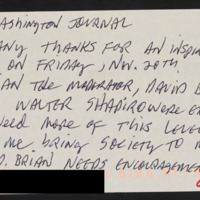 ASHINGTON JOURNAL
ANY THANKS FOR AN INSPI
ON FRIDAY, NOV. 20TH
IAN THE MODERATOR, DAVID B
WALTER SHAPIRO WERE E
EED MORE OF THIS LEVE
ME BRING SOCIETY TO
D. BRIAN NEEDS ENCOURAGEMEN